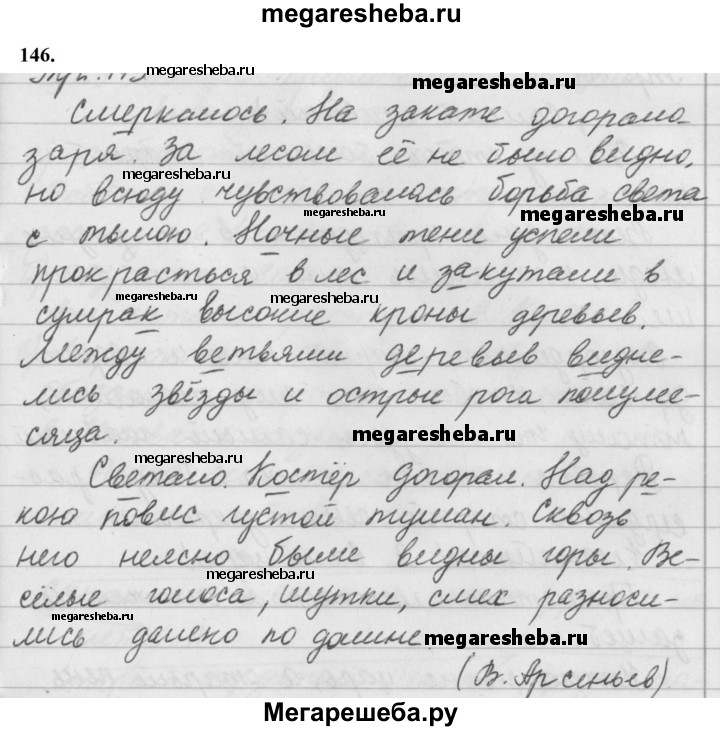 megaresheba.ru
146.
megaresheba.ru
megaresheba.ru
Смеркалось. На закате догорала
заря. За лесом её не было видно,
megaresheba.ru
но всюду чувствовалась борьба света
megaresheba.ru
megaresheba.ru
с тьмою. Ночные тени успели
прокрасться в лес и закутали в
megaresheba.ru
megaresheba.ru
сумрак высокие кроны деревьев.
Между ветвями деревьев видне-
лись звёзды и острые рога полуме-
сяца.
megaresheba.ru
megaresheba.ru
Светало. Костёр догорал. Над ре-
кою повис густой туман. Сквозь
него неясно были видны горы. Ве-
megaresheba.ru
сёлые голоса, шутки, смех разноси-
лись далеко по долине.
megaresheba.ru
(В. Арсеньев)
Мегарешеба.ру